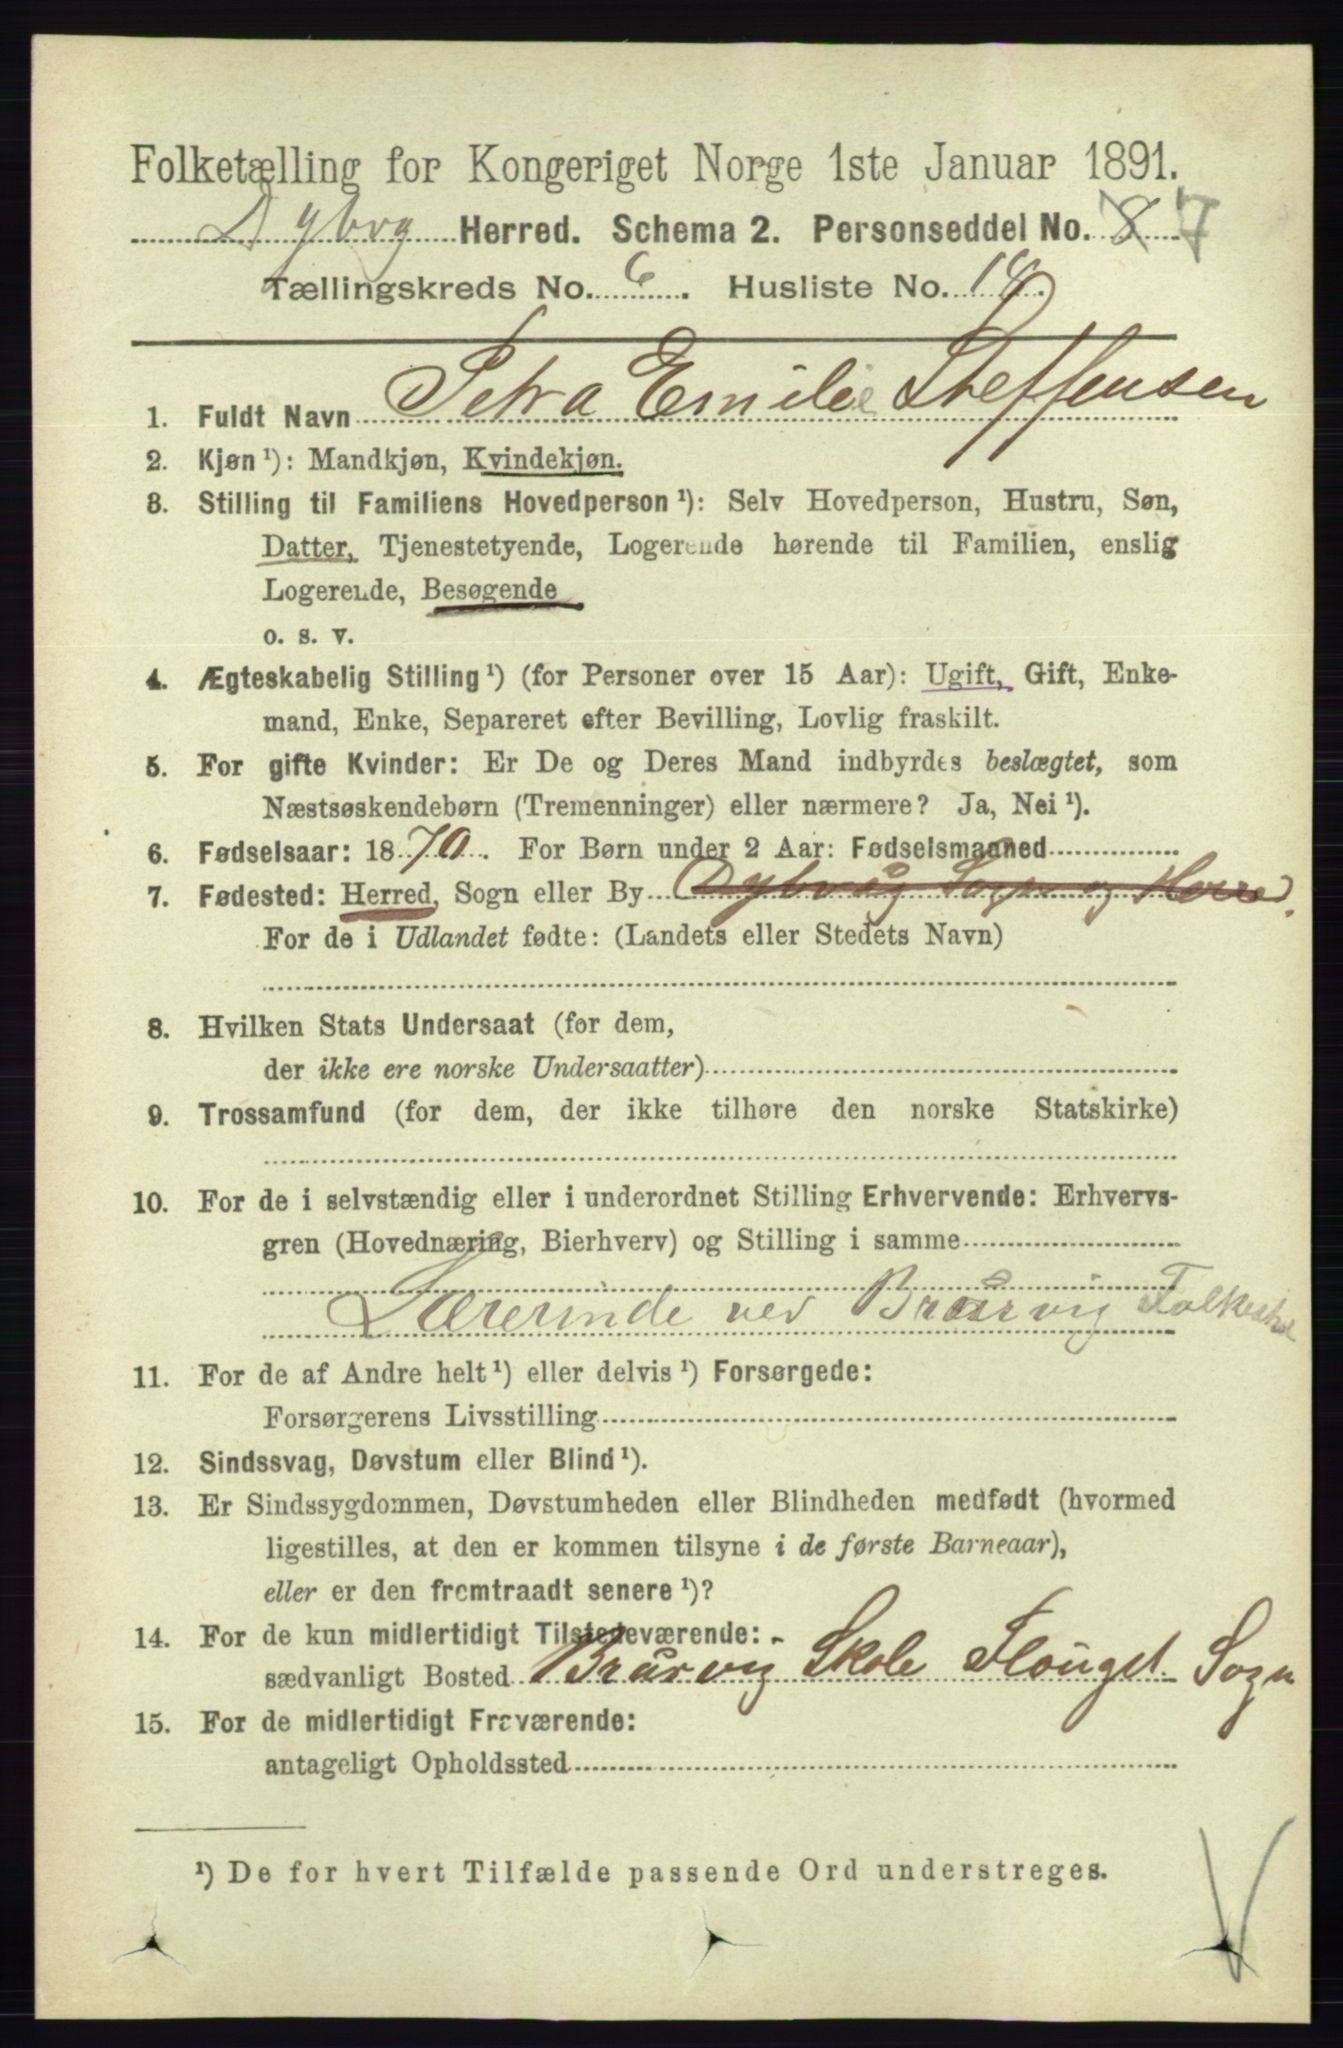 Folketælling for Kongeriget Norge 1ste Januar 1891.
Dybvg Herred. Schema 2. Personseddel No. 8 7
Tællingskreds No. 6. Husliste No. 18.
1. Fuldt Navn Petra Emilie Steffensen
2. Kjøn ¹): Mandkjøn, Kvindekjøn.
3. Stilling til Familiens Hovedperson ¹): Selv Hovedperson, Hustru, Søn,
Datter, Tjenestetyende, Logerende hørende til Familien, enslig
Logerende, Besøgende
o. s. v.
4. Ægteskabelig Stilling ¹) (for Personer over 15 Aar): Ugift, Gift, Enke-
mand, Enke, Separeret efter Bevilling, Lovlig fraskilt.
5. For gifte Kvinder: Er De og Deres Mand indbyrdes beslægtet, som
Næstsøskendebørn (Tremenninger) eller nærmere? Ja, Nei ¹).
6. Fødselsaar: 1870. For Børn under 2 Aar: Fødselsmaaned
7. Fødested: Herred, Sogn eller By Dybvåg Sogn og Herred.
For de i Udlandet fødte: (Landets eller Stedets Navn)
8. Hvilken Stats Undersaat (for dem,
der ikke ere norske Undersaatter)
9. Trossamfund (for dem, der ikke tilhøre den norske Statskirke)
10. For de i selvstændig eller i underordnet Stilling Erhvervende: Erhvervs-
gren (Hovednæring, Bierhverv) og Stilling i samme
Lærerinde ved Brårvig Folkeskole
11. For de af Andre helt ¹) eller delvis ¹) Forsørgede:
Forsørgerens Livsstilling
12. Sindssvag, Døvstum eller Blind ¹).
13. Er Sindssygdommen, Døvstumheden eller Blindheden medfødt (hvormed
ligestilles, at den er kommen tilsyne i de første Barneaar),
eller er den fremtraadt senere ¹)?
14. For de kun midlertidigt Tilstedeværende:
sædvanligt Bosted Brårvig Skole Sogn
15. For de midlertidigt Fraværende:
antageligt Opholdssted
¹) De for hvert Tilfælde passende Ord understreges.